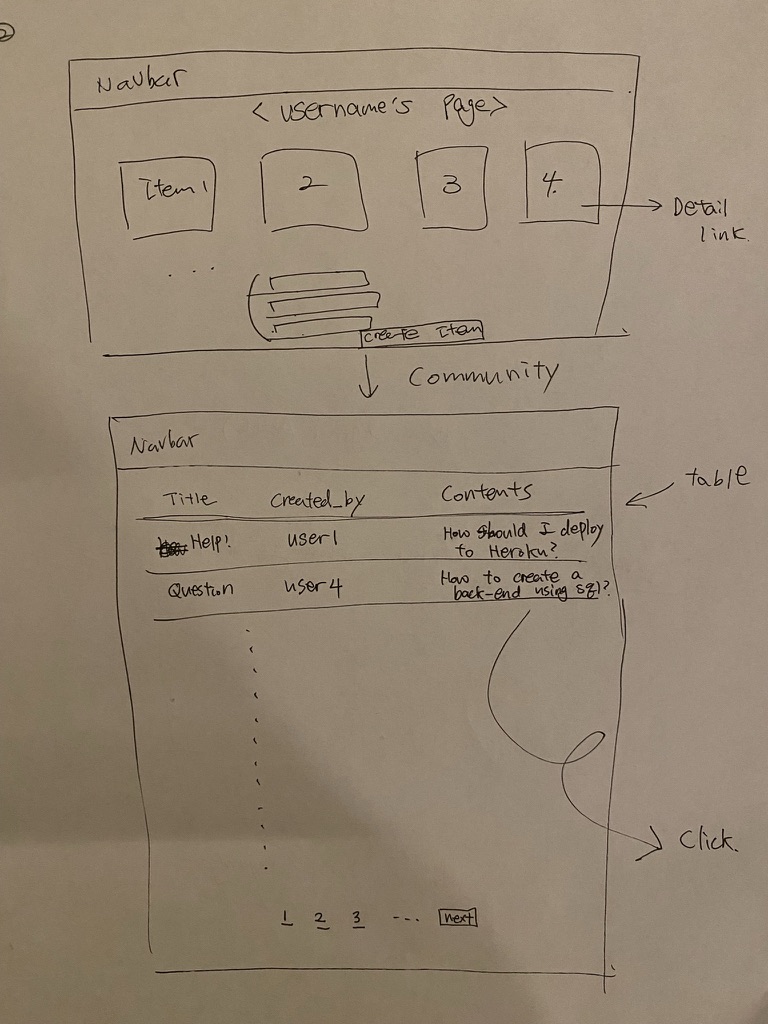 2
Navbar
< username's Page>
Item 1
2
3
4.
Detail
link.
. . .
create Item
Community
Navbar
table
Title created_by Contents
Help! user1 How should I deploy
to Heroku?
Question user4 How to create a
back-end using sql?
Click.
1 2 3 --- next